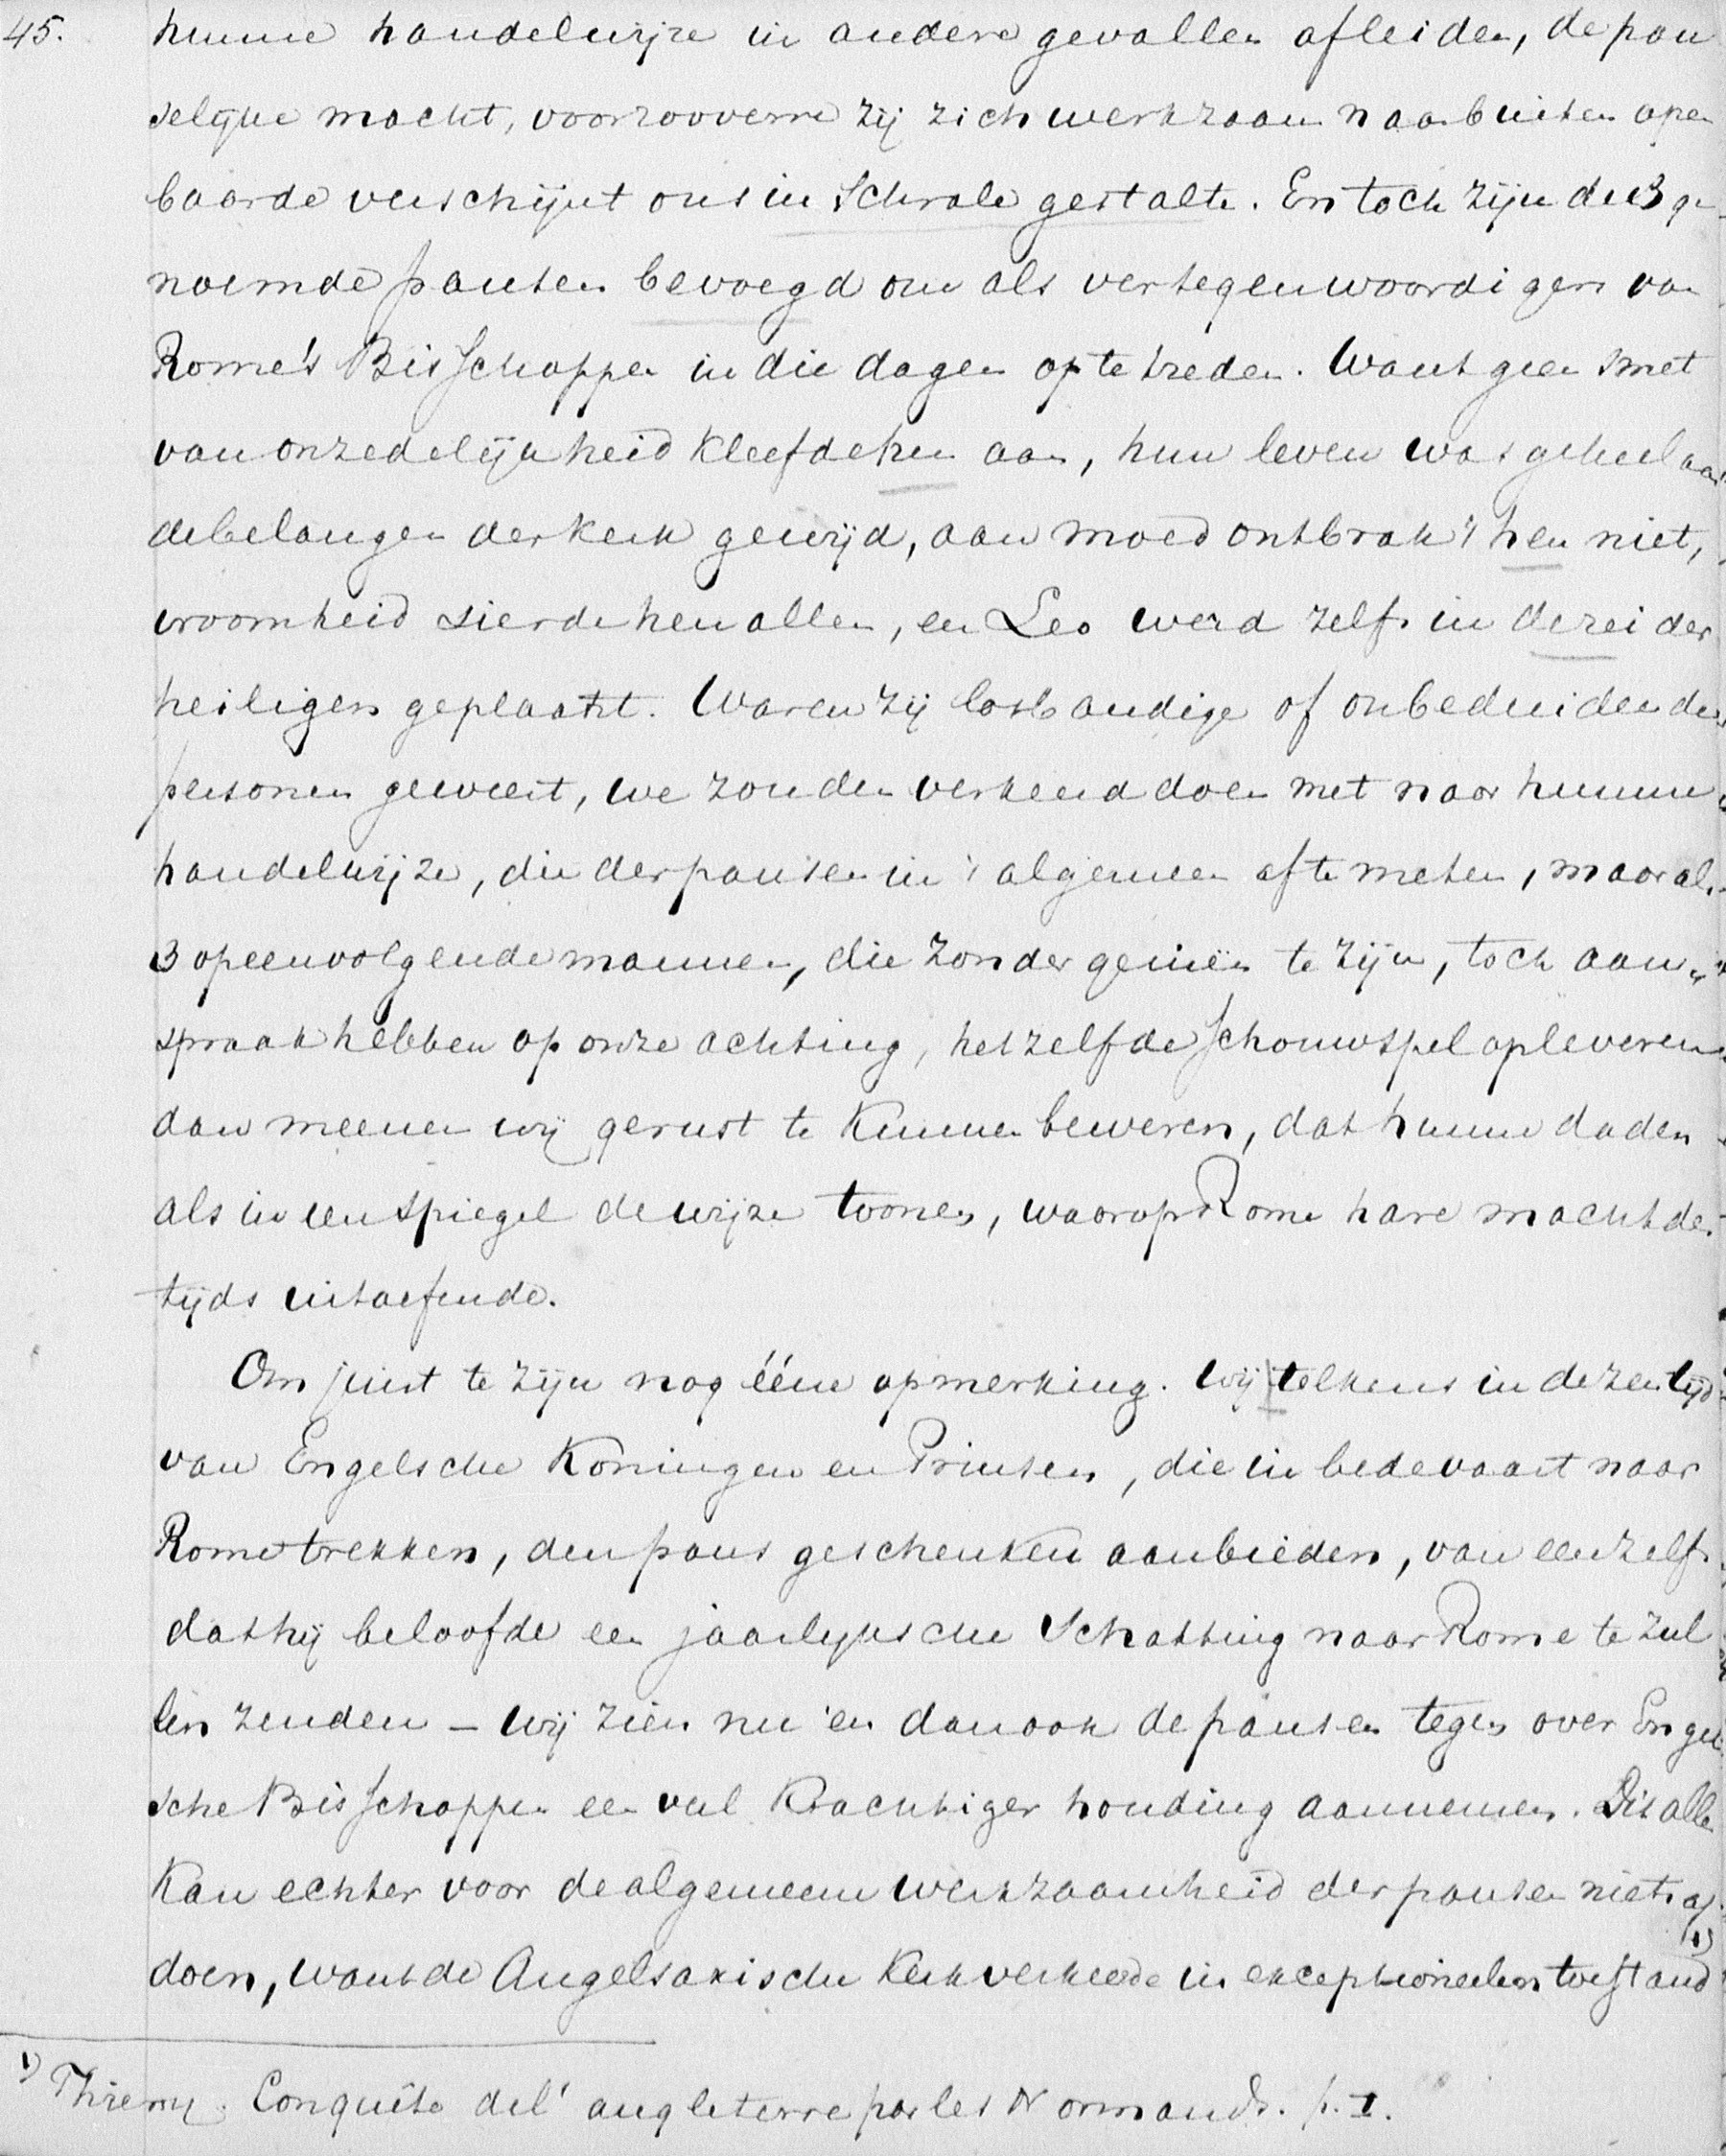 45. hunne handelwijze in andere gevallen afleiden, de pau
selijke macht, voorzooverre zij zich werkzaam naar buiten open
baarde verschijnt ons in schrale gestalte. En toch zijn de 3 ge
noemde pausen bevoegd om als vertegenwoordigers van
Rome's Bisschoppen in die dagen op te treden. Want geen smet
van onzedelijkheid kleefde hen aan, hun leven was geheel aan
de belangen der kerk gewijd, aan moed ontbrak 't hen niet,
vroomheid sierde hen allen, en Leo werd zelfs in de rei der
heiligen geplaatst. Waren zij losbandige of onbeduidende
personen geweest, we zouden verkeerd doen met naar hunne
handelwijze, die der pausen in 't algemeen af te meten, maar als
3 opeenvolgende mannen, die zonder genieën te zijn, toch aan
spraak hebben op onze achting, hetzelfde schouwspel opleveren
dan meenen wij gerust te kunnen beweren, dat hunne daden
als in een spiegel de wijze toonen, waarop Rome hare macht des
tijds uitoefende.
Om juist te zijn nog ééne opmerking. Wij telkens in dezen tijd
van Engelsche Koningen en Prinsen, die in bedevaart naar
Rome trekken, den paus geschenken aanbieden, van een zelfs
dat hij beloofde een jaarlijksche schatting naar Rome te zul
len zenden – wij zien nu en dan ook de pausen tegenover Engel
sche Bisschoppen een veel krachtiger houding aannemen. Dit alles
kan echter voor de algemeene werkzaamheid der pausen niets af
doen, want de Angelsaxische Kerk verkeerde in exceptioneelen toestand 1)
1) Thierry. Conquête de l'angleterre par les Normands. p. I.